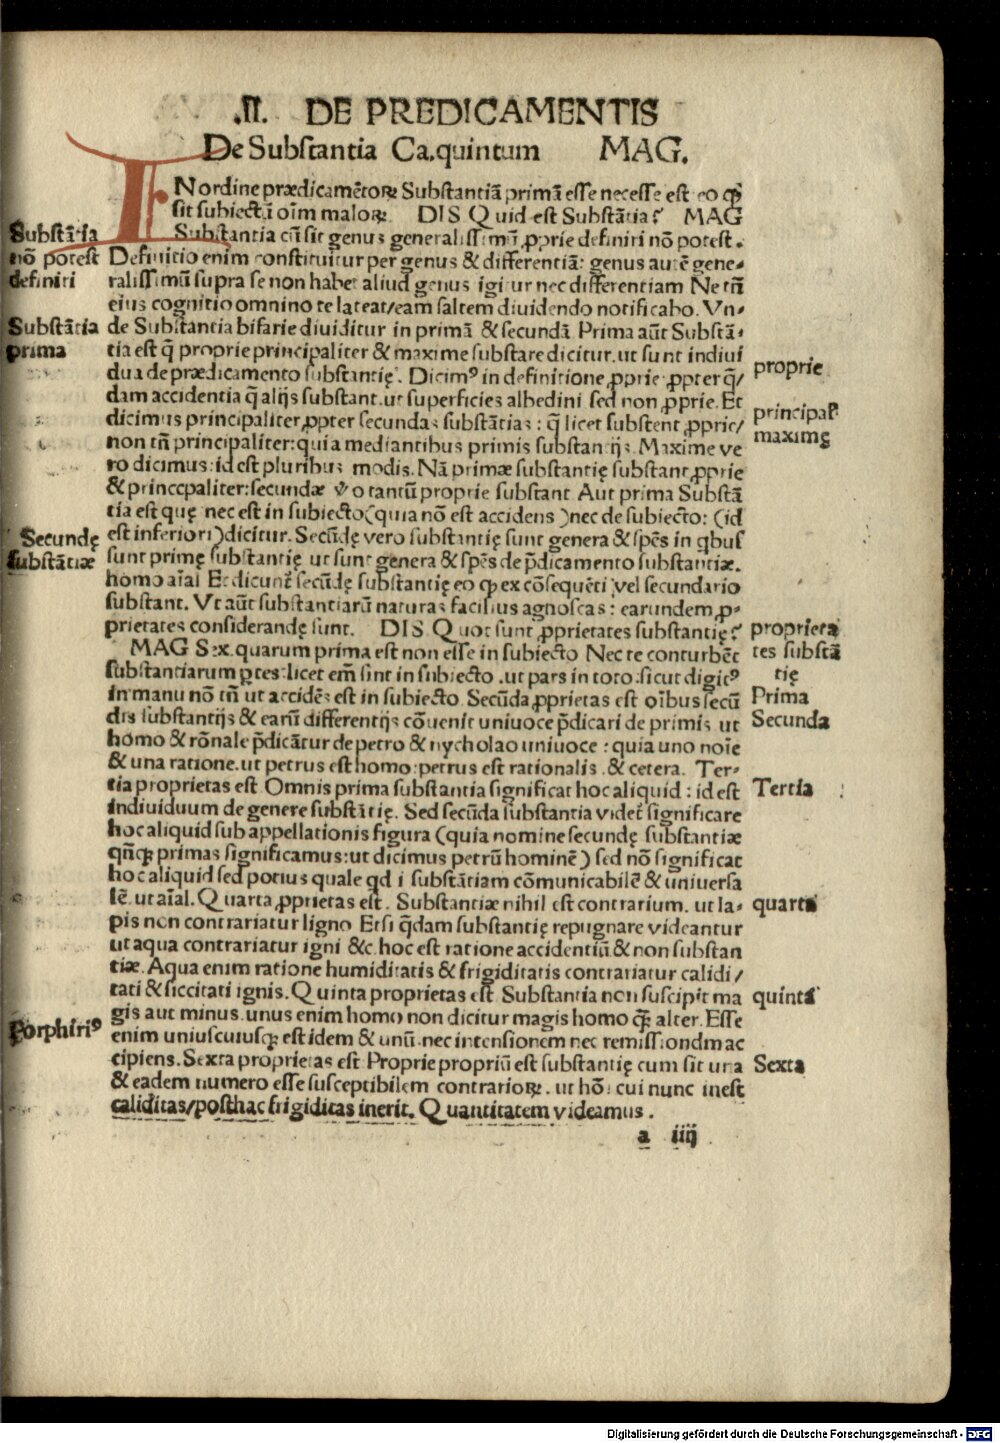 .II. DE PREDICAMENTIS
De Substantia Ca.quintum MAG.
IN ordine prædicamētoꝝ Substantiā primā esse necesse est eo ꝙ
sit subiectū oīm maloꝝ. DIS Quid est Substātia? MAG
Substantia cū sit genus generalissimū ꝓprie definiri nō potest.
Definitio enim constituitur per genus & differentiā: genus autē gene-
ralissimū supra se non habet aliud genus igitur nec differentiam Ne tn̄
eius cognitio omnino te lateat/eam saltem diuidendo notificabo. Vn-
de Substantia bifarie diuiditur in primā & secundā Prima aūt Substā-
tia est q̄ proprie principaliter & maxime substare dicitur. ut sunt indiui
dua de prædicamento substantię. Dicimꝰ in definitione ꝓprie ꝓpter q̄/
dam accidentia q̄ alijs substant. ut superficies albedini sed non ꝓprie. Et
dicimus principaliter ꝓpter secundas substātias: q̄ licet substent ꝓprie/
non tn̄ principaliter: quia mediantibus primis substantijs. Maxime ve
ro dicimus: id est pluribus modis. Nā primæ substantię substant ꝓprie
& princcpaliter: secundæ vo tantū proprie substant Aut prima Substā
tia est quę nec est in subiecto (quia nō est accidens) nec de subiecto: (id
est inferiori) dicitur. Secūdę vero substantię sunt genera & spēs in qbus
sunt primę substantię ut sunt genera & spēs de p̄dicamento substantiæ.
homo aīal Et dicunt̄ secūdę substantię eo ꝙ ex cōsequēti vel secundario
substant. Vt aūt substantiarū naturas facilius agnoscas: earundem ꝓ-
prietates considerandę sunt. DIS Quot sunt ꝓprietates substantię?
MAG Sex. quarum prima est non esse in subiecto Nec te conturbēt
substantiarum ꝑtes: licet em̄ sint in subiecto. ut pars in toto: sicut digitꝰ
in manu nō tn̄ ut accidēs est in subiecto Secūda ꝓprietas est oībus secū
dis substantijs & earū differentijs cōuenit uniuoce p̄dicari de primis ut
homo & rōnale p̄dicātur de petro & nycholao uniuoce: quia uno noīe
& una ratione. ut petrus est homo: petrus est rationalis. & cetera. Ter-
tia proprietas est Omnis prima substantia significat hoc aliquid: id est
indiuiduum de genere substātię. Sed secūda substantia videt̄ significare
hoc aliquid sub appellationis figura (quia nomine secundę substantiæ
qn̄qꝫ primas significamus: ut dicimus petrū hominē) sed nō significat
hoc aliquid sed potius quale qd i substātiam cōmunicabilē & uniuersa
lē. ut aīal. Quarta ꝓprietas est. Substantiæ nihil est contrarium. ut la-
pis non contrariatur ligno Etsi q̄dam substantię repugnare videantur
ut aqua contrariatur igni &c. hoc est ratione accidentiū & non substan
tiæ. Aqua enim ratione humiditatis & frigiditatis contrariatur calidi/
tati & siccitati ignis. Quinta proprietas est Substantia non suscipit ma
gis aut minus. unus enim homo non dicitur magis homo q̄ꝫ alter. Esse
enim uniuscuiusqꝫ est idem & unū. nec intensionem nec remissiondm ac
cipiens. Sexta proprietas est Proprie propriū est substantię cum sit una
& eadem numero esse susceptibilem contrarioꝝ. ut hō: cui nunc inest
caliditas/posthac frigiditas inerit. Quantitatem videamus.
a iiij
Substātia
nō potest
definiri
Substātia
prima
Secundę
substātiæ
Porphiriꝰ
proprie
principaꝉr
maxime
proprieta
tes substā
tię
Prima
Secunda
Tertia
quarta
quinta
Sexta
Digitalisierung gefördert durch die Deutsche Forschungsgemeinschaft - DFG